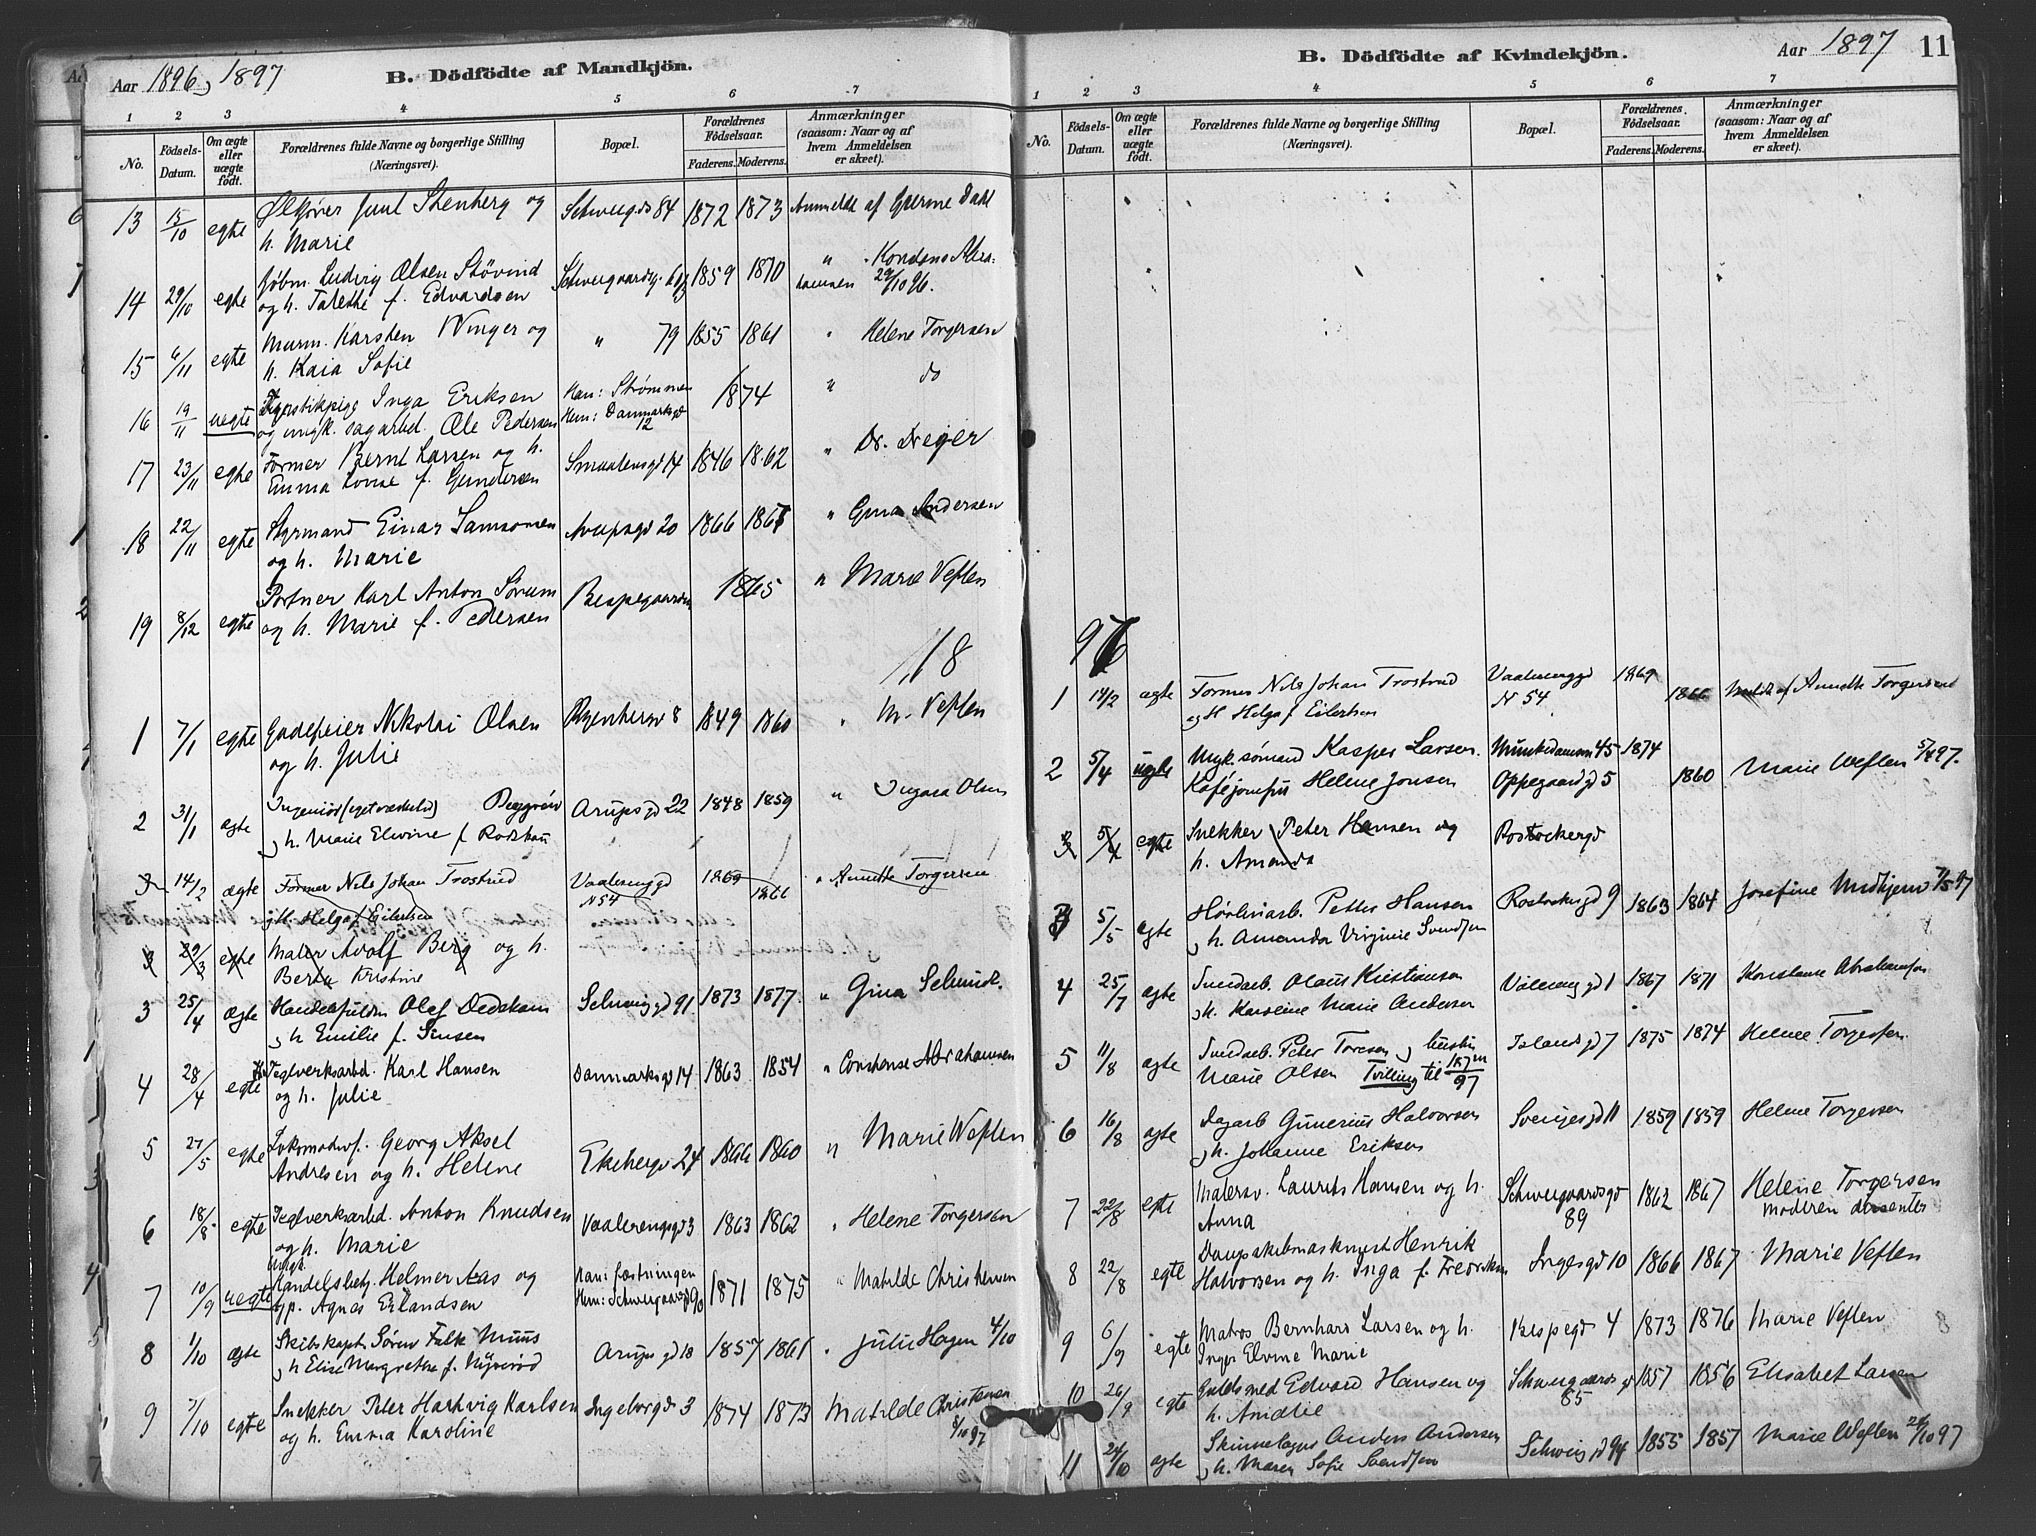 Aar 1896, 1897
B. Dödfödte af Mandkjön.
1 2 3 4 5 6 7
No. Födsels-Datum. Om ægte eller uægte födt. Forældrenes fulde Navne og borgerlige Stilling (Næringsvei). Bopæl. Forældrenes Födselsaar. Faderens. Moderens. Anmærkninger (saasom: Naar og af hvem Anmeldelsen er skeet).
13 15/10 egte Juul Stenberg og 84 1872 1873 Anmeldt af Dahl
h. Marie
14 29/10 egte Ludvig Olsen Stövind 1859 1870 "
og h. Talethe f. Edvardsen 29/10 96.
15 6/11 egte Murm. Karsten Winger og " 79 1855 1861 " Helene Torgersen
h. Kaia Sofie
16 19/11 uegte Inga Eriksen Han: Strømmen 1874 " do
og ungk. sagarbd. Ole Pedersen Hun: Danmarksgd 12
17 23/11 egte Former Bernt Larsen og h. Smaalensgd 14 1846 1862 " Dr.
Emma Lovise f. Gundersen
18 22/11 egte Styrmand Einar Samsonsen Arupsgd 20 1866 " Gina Andersen
og h. Marie
19 8/12 egte Portner Karl Anton Sörum 1865 " Marie Veflen
og h. Marie f. Pedersen
18
1 7/1 egte Gadefeier Nikolai Olsen 8 1849 1860 " M. Veflen
og h. Julie
2 31/1 ægte Ingeniör Arupsgd 22 1848 1859 " Olsen
og h. Marie Elvine f.
3 14/2 ægte Former Nils Johan Trostrud Vaalerenggd N 54 1869 1866 " Annette Torgersen
og H. Helga f. Eilertsen
3 23/3 egte Maler Adolf Berg og h.
Berta Kristine
3 25/4 ægte Olaf Schweigd 91 1873 1877. " Gina
og h Emilie f. Jensen
4 28/4 egte Teglverksarbd. Karl Hansen Danmarksgd 14 1863 1854 " Constanse Abrahamsen
og h. Julie
5 27/5 egte Lokomotivf. Georg Aksel Ekebergv 24 1866 1860 " Marie Weflen
Andresen og h. Helene
6 18/8 egte Teglverksarbd. Anton Knudsen Vaalerengsgd 3 1863 1862 " Helene Torgersen
og h. Marie
7 10/9 uegte Ungk. Handelsbetj. Helmer Aas og Han: fæstningen 1871 1875 " Matilde Christensen
gp. Agnes Erlandsen Hun: Schweigaardsgd 90
8 1/10 ægte Skibskapt. Sören Falk Muus Arups gd 18 1857 1861 " Julie Hagen 4/10
og h Elise Margrethe f.
9 7/10 egte Snekker Peter Hartvig Karlsen Ingeborgd 3 1874 1873 Matilde Christensen
og h. Emma Karoline 8/10 97
B. Dödfödte af Kvindekjön.
Aar 1897 11
1 2 3 4 5 6 7
No. Födsels-Datum. Om ægte eller uægte födt. Forældrenes fulde Navne og borgerlige Stilling (Næringsvei). Bopæl. Forældrenes Födselsaar. Faderens. Moderens. Anmærkninger (saasom: Naar og af hvem Anmeldelsen er skeet).
97
1 14/2 ægte Former Nils Johan Trostrud Vaalerenggd 1869 1866 Meldt af Annette Torgersen
og H Helga f. Eilertsen N 54
2 5/4 uægte Ungk. sömand Kasper Larsen. Munkedamsv 45 1874 Marie Weflen 5/4 97.
Kaféjomfru Helene Jonsen Oppegaardgd 5 1860
3 5/4 egte Snekker Peter Hansen og Rostockergd
h. Amanda
3 5/5 ægte Petter Hansen Rostockergd 9 1863 1864 Josefine 7/5 97
og h. Amanda Virginie Svendsen
4 25/7 ægte Olaus Kristiansen Vålereng gd 1 1867 1871 Konstanse Abrahamsen
og h. Karoline Marie Andersen
5 11/8 ægte Peter Toresen og hustru Islands gd 7 1875 1874 Helene Torgersen.
Marie Olsen Tvilling til No 157 m/97
6 16/8 ægte Dagarb Gunerius Halvorsen Sveriges gd 11 1859 1859 Helene Torgersen
og h. Johanne Eriksen
7 22/8 egte Malersv. Laurits Hansen og h. Schweigaardsgd 1862 1867 Helene Torgersen
Anna 89 moderen dissenter
8 22/8 egte Henrik Inges gd 10 1866 1867 Marie Veflen
Halvorsen og h. Inga f. Fredriksen
9 6/9 egte Matros Bernhard Larsen og h. 4 1873 1876 Marie Veflen
Inger Elvine Marie
10 26/9 egte Guldsmed Edvard Hansen og Schweigaards gd 1857 1856 Elisabet Larsen
h. Amalie 85
11 24/10 ægte Anders Andersen Schweigd 94 1855 1857 Marie Weflen 26/10 97
og h. Maren Sofie Svendsen